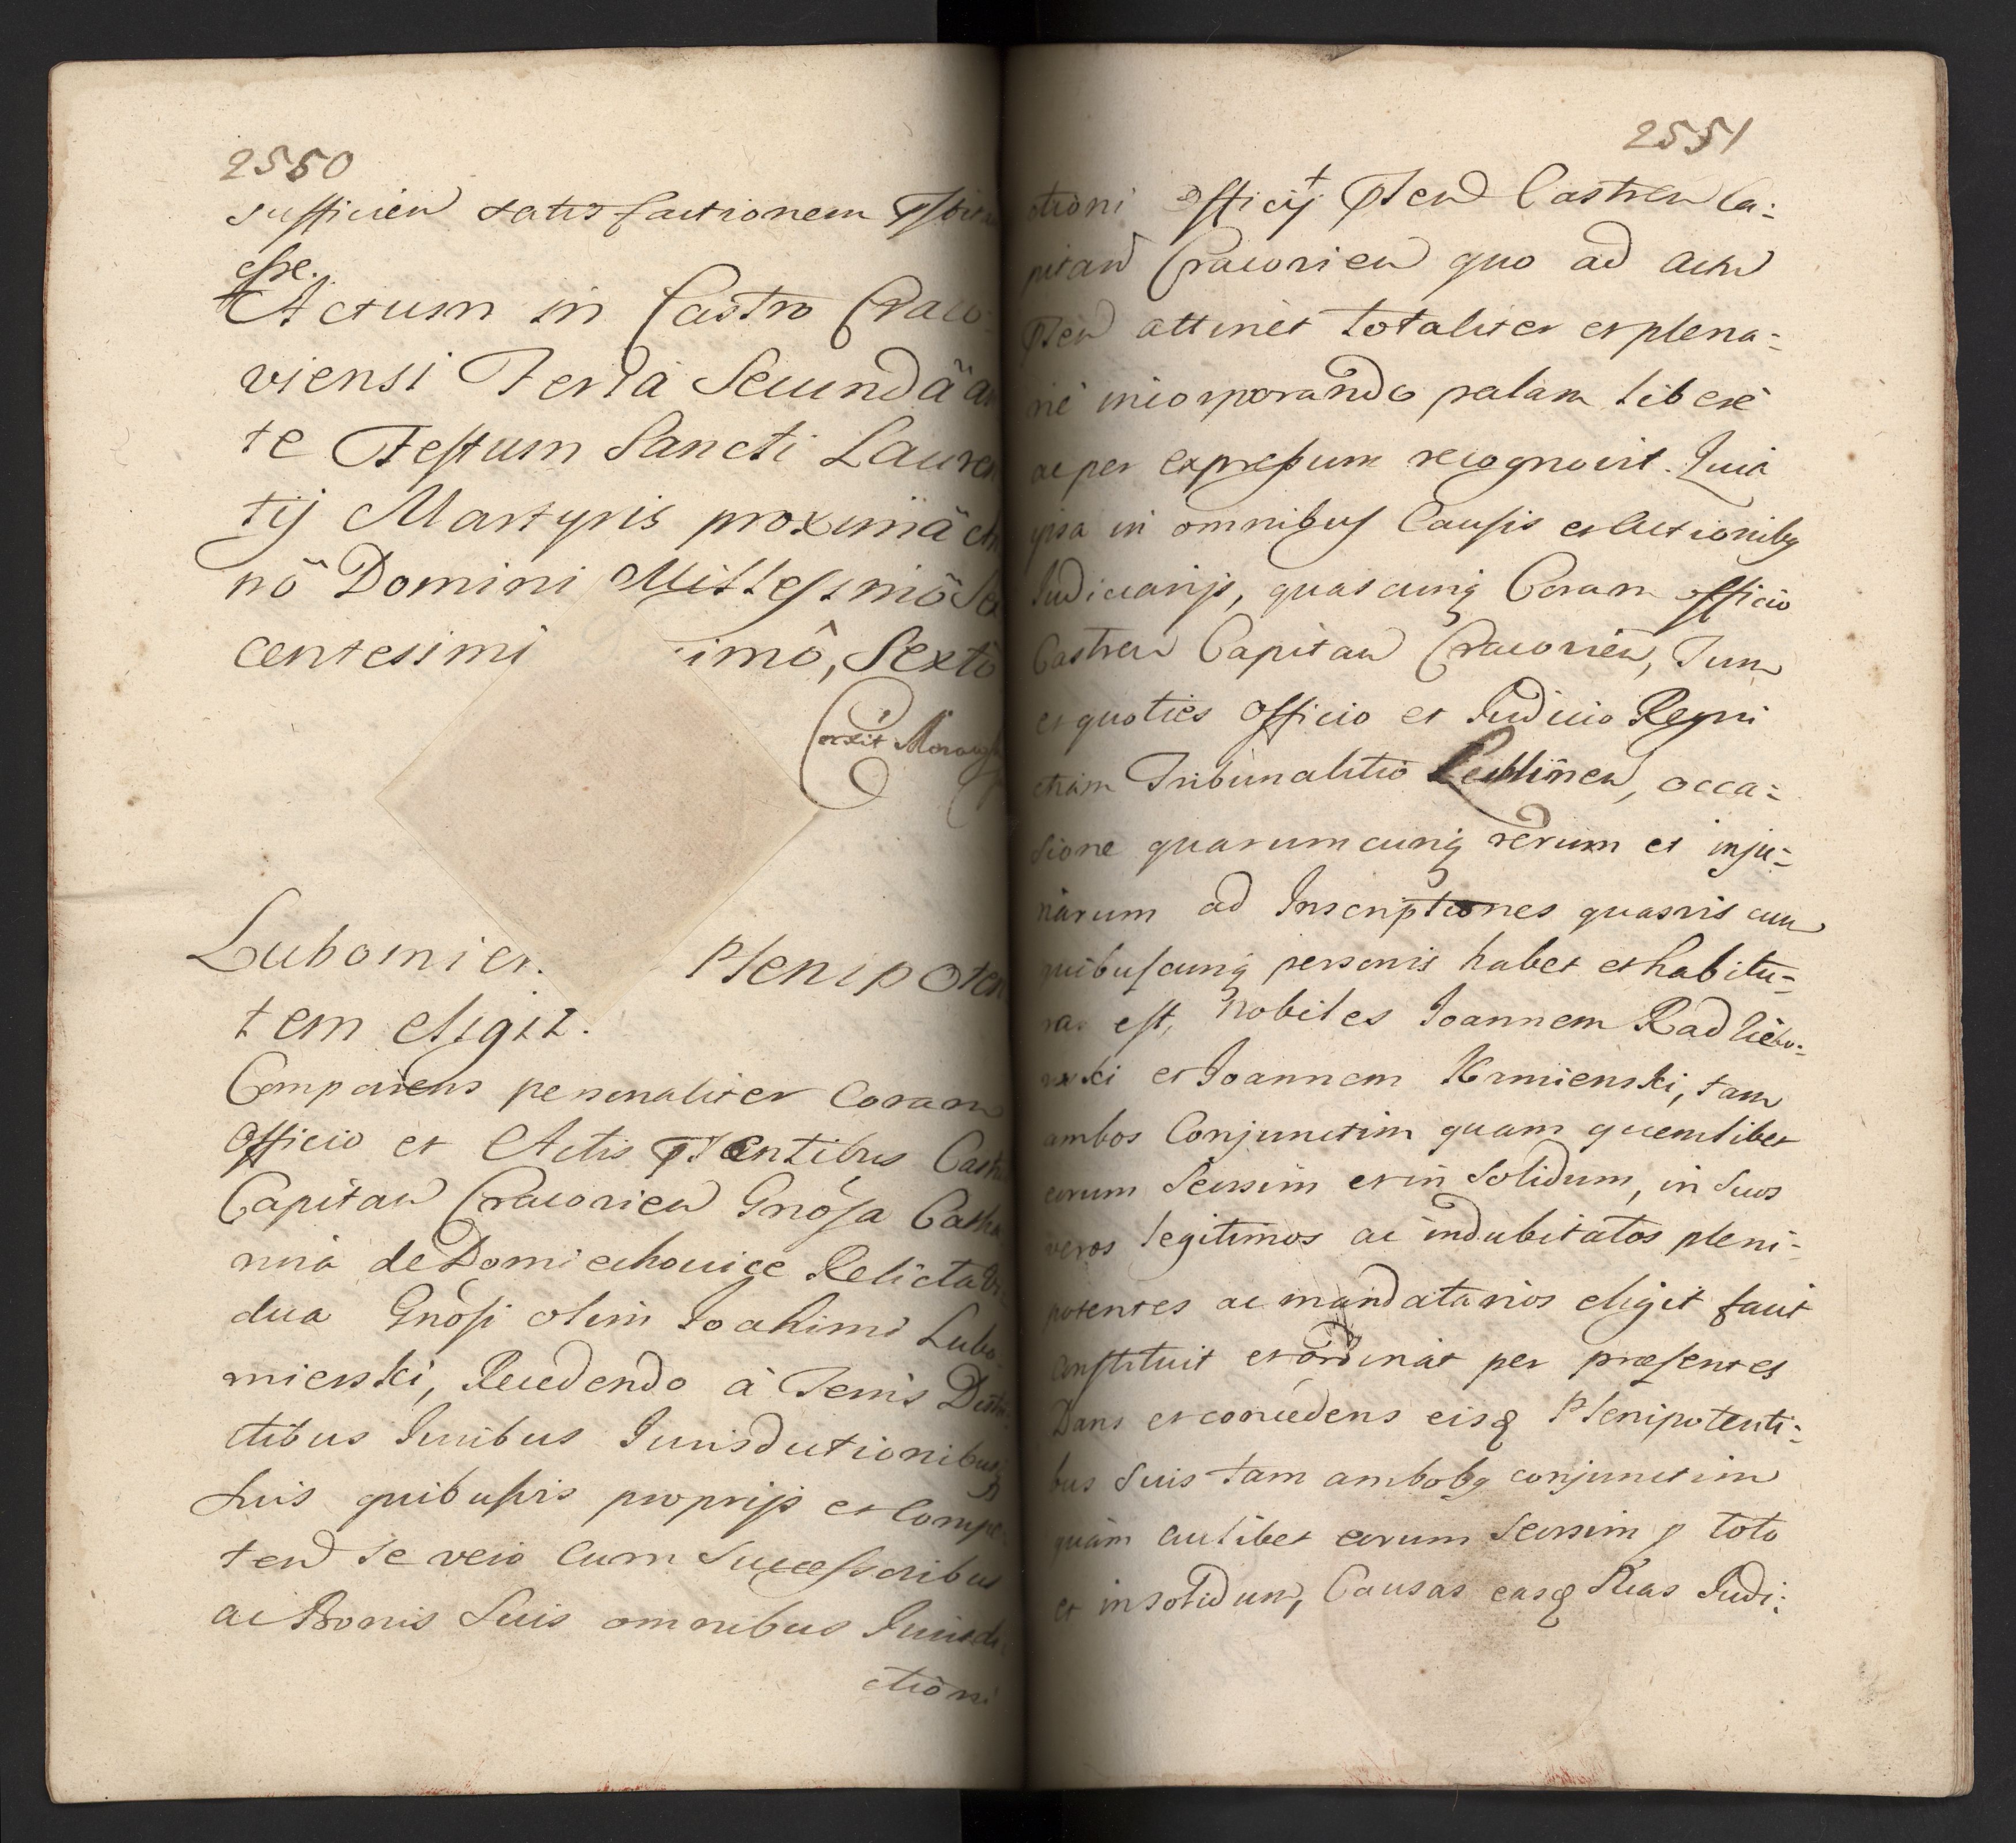 2550
sufficien satisfactionem
esse.
Actum in Castro Craco
viensi Feria Secundâ an
te Festum Sancti Lauren
tij Martyris proximâ An
nô Domini Millesimô Sex
centesimô imô, Sextô
Corexit
Lubomier. Plenipoten
tem eligit.
Comparens personaliter Coram
Officio et Actis Pntibus Castr
Capitan Cracovien Gnôsa Catha
rina de Domiechowice Relicta Vi
dua Gnôsi olim Joahimi Lubo
mierski, Recedendo à Terris Distri
ctibus Juribus Jurisdictionibus
suis quibusvis proprijs et Compe
ten se vero Cum Successoribus
ac Bonis Suis omnibus Jurisdi
ctioni
2551
ctioni Officij Pten Castren Ca:
pitan Cracovien quo ad actu
Pten attinet totaliter et plena:
riè incorporando palam liberè
ac per expressum recognovit. Quia
ipsa in omnibus Causis et Actionibq
Judiciarijs, quascunq Coram officio
Castren Capitan Cracovien, Tum
et quoties Officio et Judicio Regni
etiam Tribunalitio Lublinen, occa:
sione quarumcunq rerum et inju:
riarum ad Inscriptiones quasvis cum
quibuscunq personis habet et habitu:
ra est, Nobiles Joannem
et Joannem Krmienski, tam
ambos Conjunctim quam quemlibet
eorum Seorsim et in Solidum, in Suos
veros legitimos ac indubitatos pleni:
potentes ac mandatarios eligit facit
Constituit et ordinat per præsentes
Dans et concedens eisq Plenipotenti:
bus Suis tam ambobq conjunctim
quàm cuilibet eorum Seorsim p toto
et in solidum, Causas easq Suas Judi: